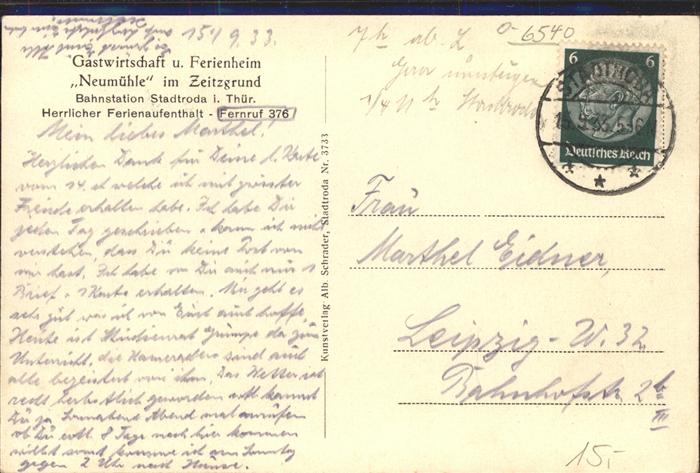 15/9.33.
Gastwirtschaft u. Ferienheim
„Neumühle" im Zeitzgrund
Bahnstation Stadtroda i. Thür.
Herrlicher Ferienaufenthalt - Fernruf 376
Mein liebes Marthel!
Herzlichen Dank für Deine l. Karte
vom 14. welche ich mit grösster
Freude erhalten habe. Ich habe Dir
jeden Tag geschrieben kann ich nicht
verstehen, dass Du keine Post von
mir hast. Ich habe von Dir auch nur 1
Brief u. 1 Karte erhalten. Mir geht es
sehr gut was ich von Euch auch hoffe.
Heute ist da zum
Unterricht, die Kameraden sind auch
alle begeistert von ihm. Das Wetter ist
recht herbstlich geworden
Du ja Sonnabend Abend mal anrufen
ob Du evtl. 8 Tage nach hier kommen
willst sonst komme ich am Sonntag
gegen 2 Uhr nach Hause.
Kunstverlag Alb. Schrader, Stadtroda Nr. 3733
7h ab L
Gera umsteigen
Stadtroda
6540
6 6
Deutsches Reich
STADTRODA
15.9.33.5-6
Frau
Marthel Eidner,
Leipzig-W. 32
Bahnhofstr. 2b
III
15,-